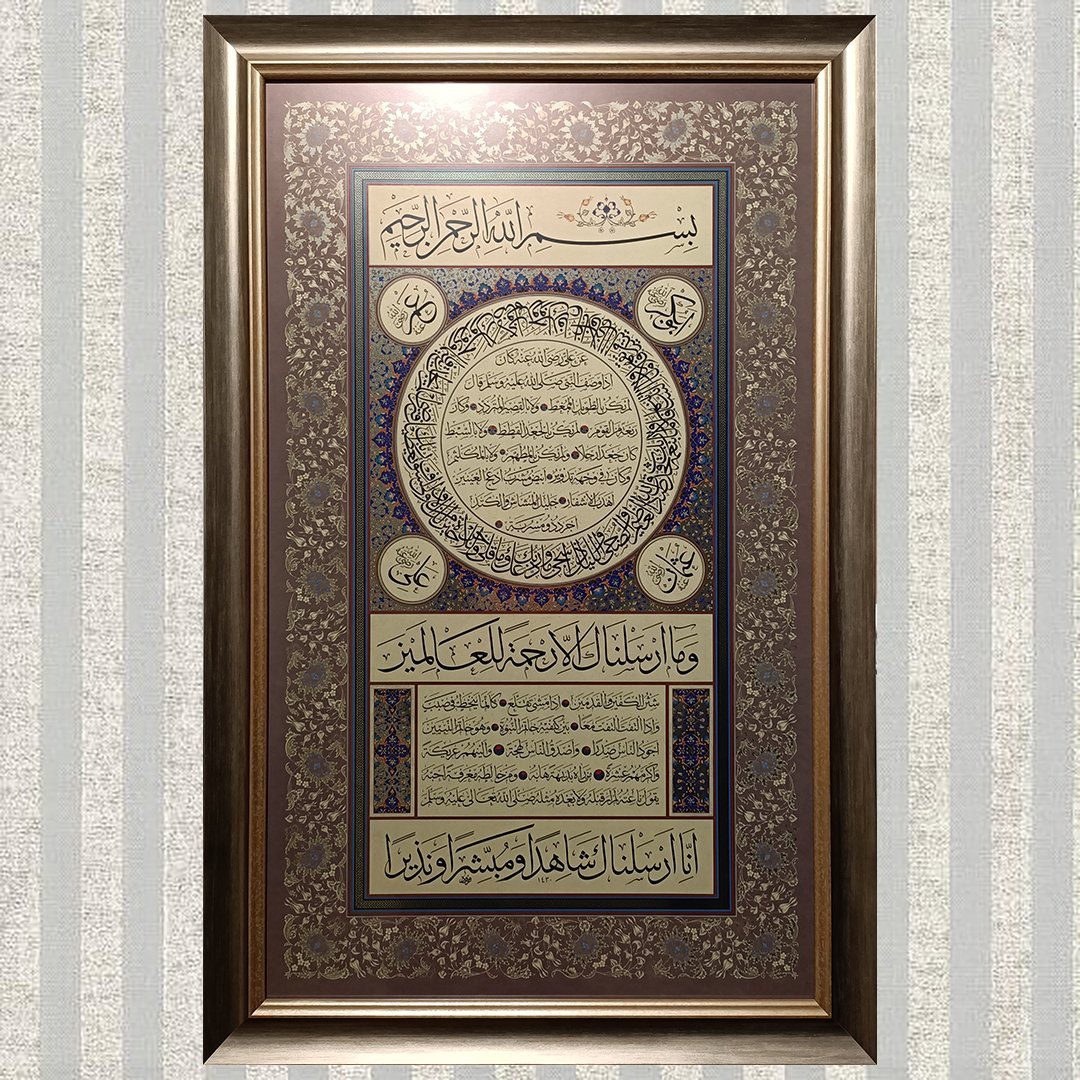 بسم الله الرحمن الرحيم
ابوبكر رضي الله عنه
عمر رضي الله عنه
عن علي رضي الله عنه كان
اذا وصف النبي صلى الله عليه وسلم قال
لم يكن بالطويل الممغط ولا بالقصير المتردد وكان
ربعة من القوم لم يكن بالجعد القطط ولا بالسبط
كان جعدا رجلا ولم يكن بالمطهم ولا بالمكلثم
وكان في وجهه تدوير ابيض مشرب ادعج العينين
اهدب الاشفار جليل المشاش والكتد
اجرد ذو مسربة
عثمان رضي الله عنه
علي رضي الله عنه
وما ارسلناك الا رحمة للعالمين
شثن الكفين والقدمين اذا مشى تقلع كانما ينحط في صبب
واذا التفت التفت معا بين كتفيه خاتم النبوة وهو خاتم النبيين
اجود الناس صدرا واصدق الناس لهجة والينهم عريكة
واكرمهم عشرة من راه بديهة هابه ومن خالطه معرفة احبه
يقول ناعته لم ار قبله ولا بعده مثله صلى الله تعالى عليه وسلم
انا ارسلناك شاهدا ومبشرا ونذيرا
١٤٣٠